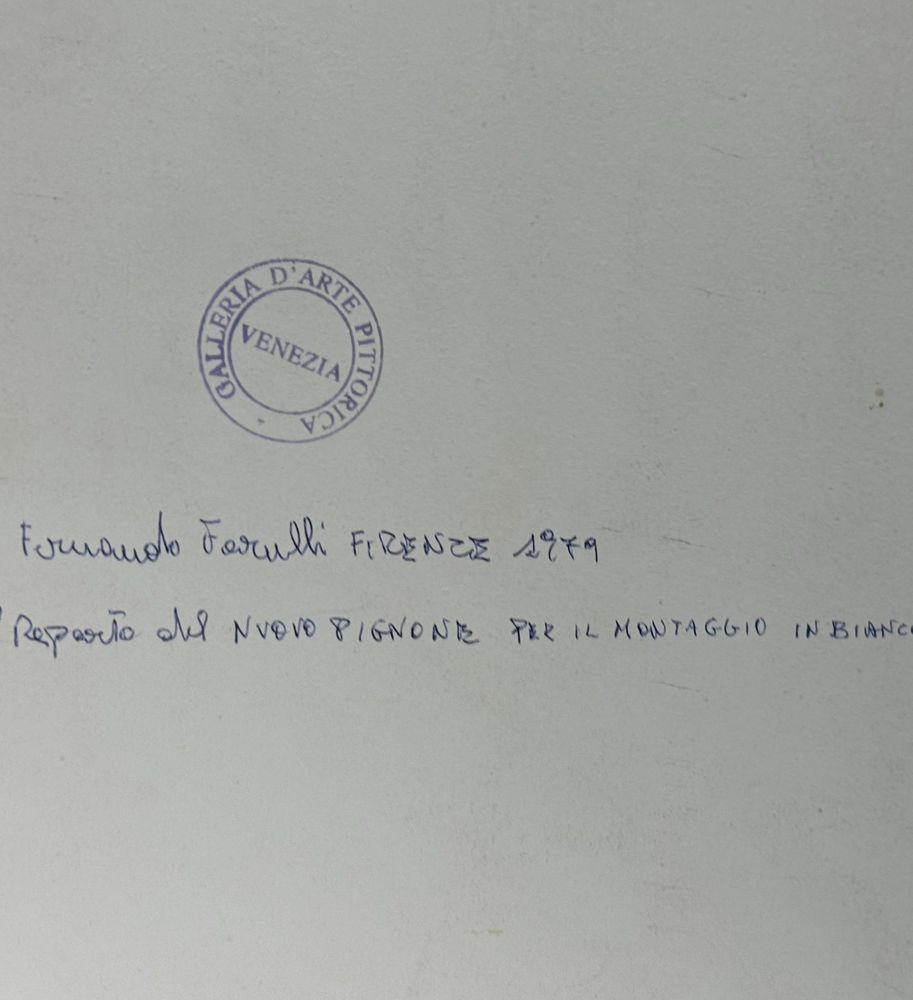 GALLERIA D'ARTE PITTORICA
VENEZIA
Fernando Farulli FIRENZE 1979
Reparto del NUOVO PIGNONE PER IL MONTAGGIO IN BIANCO